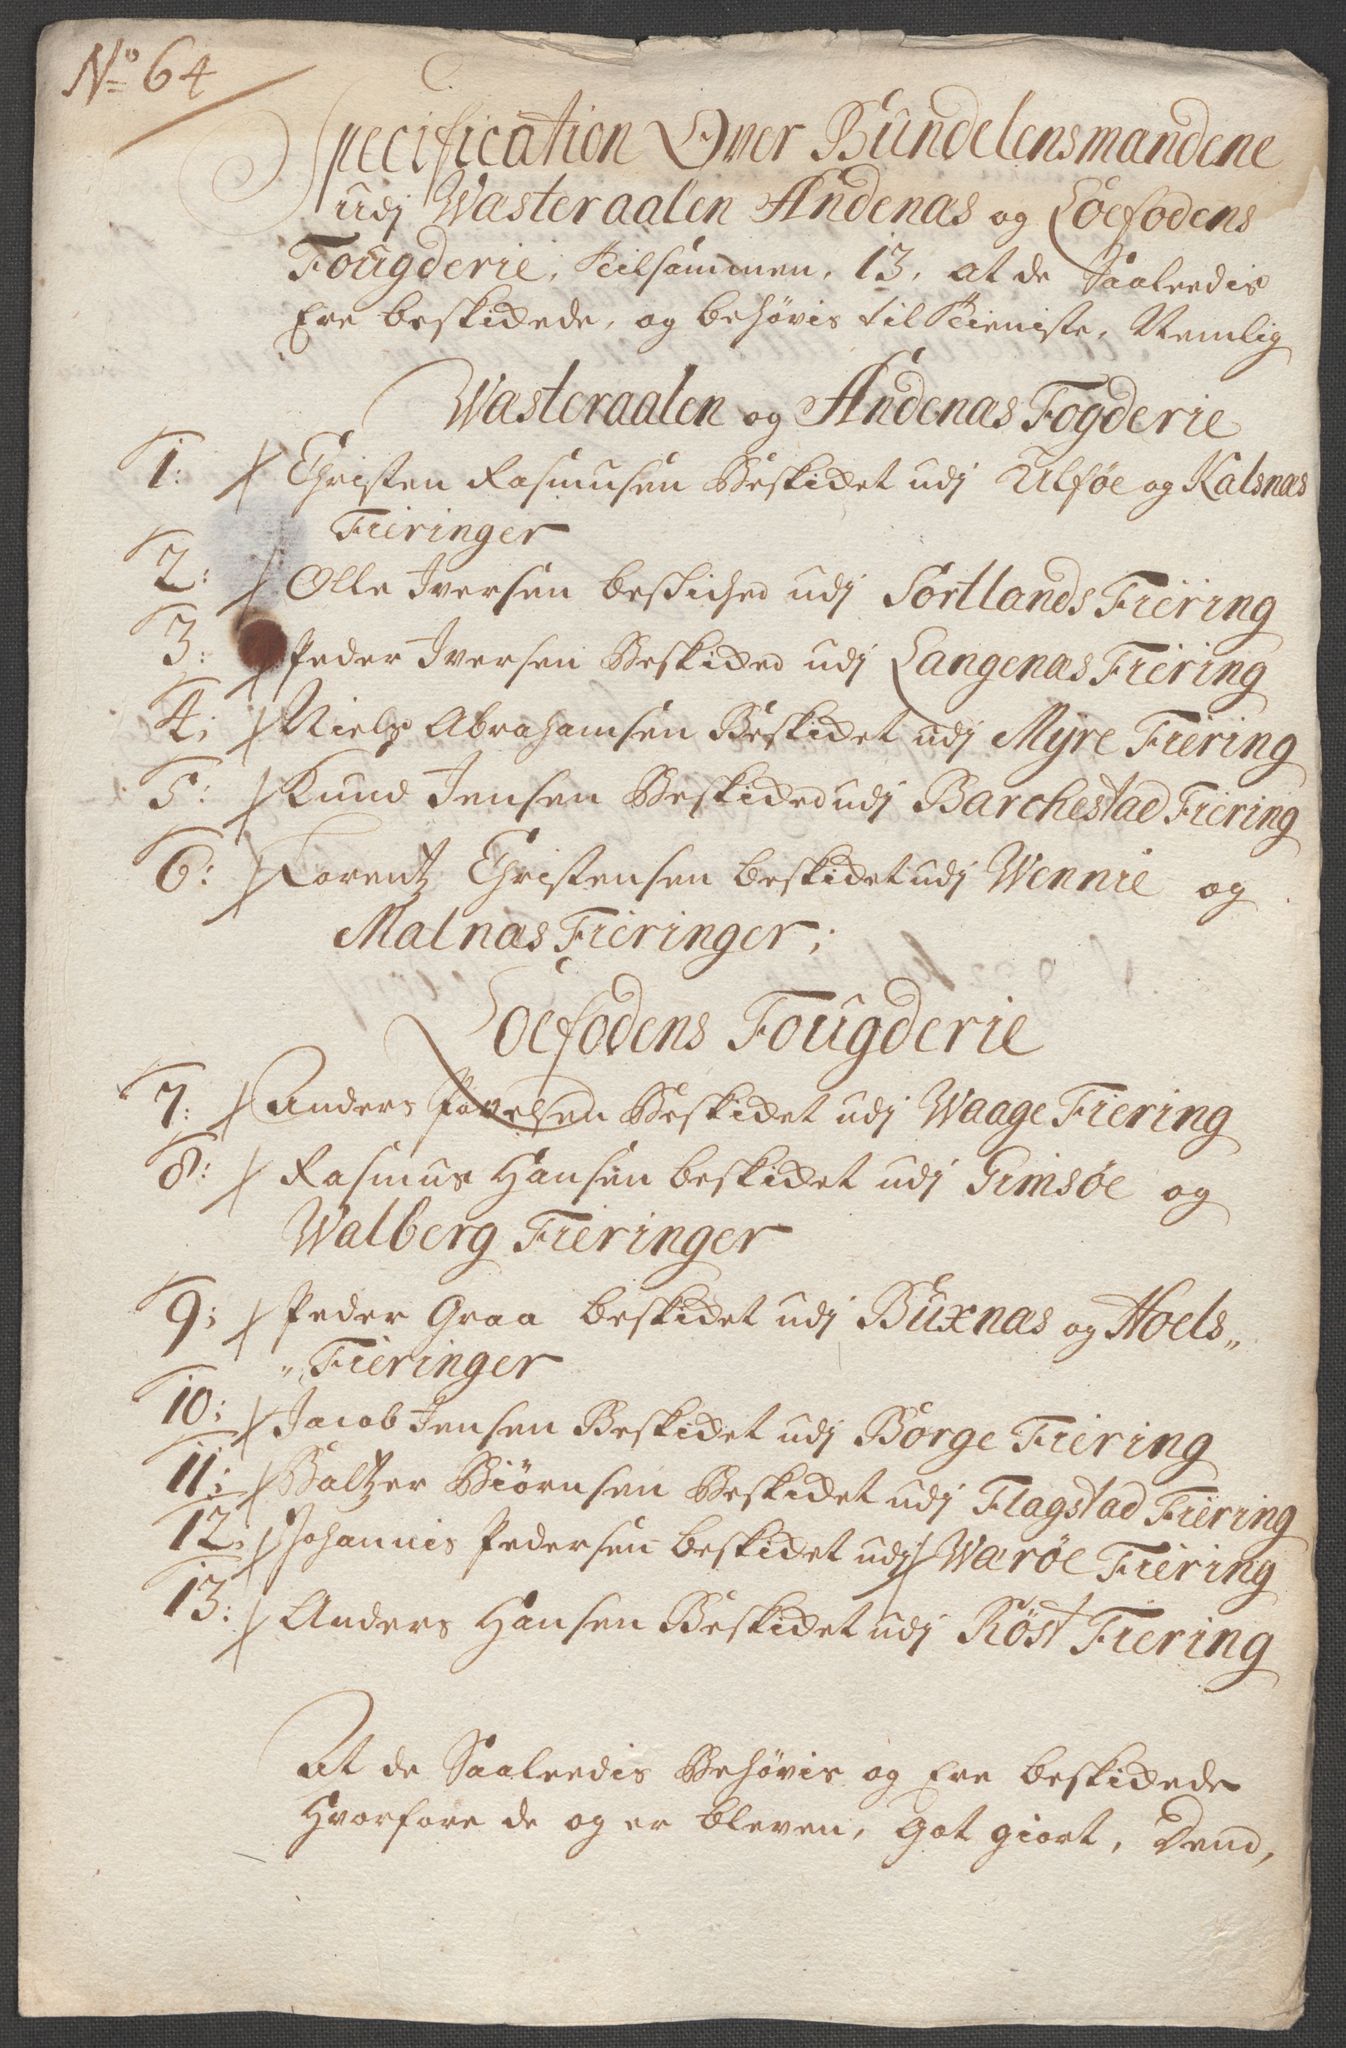 No 64
Specification Over Bundelensmandene
udj Wasteraalen Andenæs og Loefodens
Fougderie, tilsammen, 13, at de Saaleedis
Ere beskidede, og behøvis til tieniste, Nemlig
Wasteraalen og Andenæs Fogderie
1: Christen Rasmusen Beskidet udj Ulføe og Kalsnæs
Fieringer
2: Olle Iversen beskidhed udj Sortlands Fiering
3: Peder Iversen Beskided udj Langenæs Fiering
4: Niels Abrahamsen Beskidet udj Myre Fiering
5: Knud Jensen Beskided udj Barchestad Fiering
6: Lorentz Christensen beskidet udj Wennie og
Malnæs Fieringer;
Loefodens Fougderie
7: Anders Povelsen Beskidet udj Waage Fiering
8: Rasmus Hansen beskidet udj Gimsøe og
Walberg Fieringer
9; Peder Graa beskidet udj Buxnæs og Hoels„
„Fieringer
10; Jacob Jensen Beskidet udj Borge Fiering
11; Baltzer Biørnsen Beskidet udj Flagstad Fiering
12; Johannis Pedersen beskidet udj Warøe Fiering
13: Anders Hansen Beskidet udj Røst Fiering
At de Saaleedis Behøvis og Ere beskidede
Hvorfore de og er bleven, Got giort, Dend,